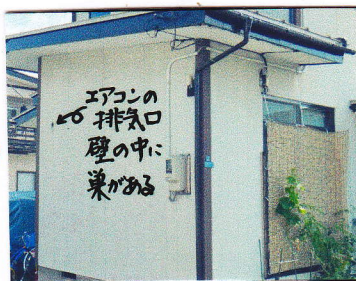 エアコンの
排気口
壁の中に
巣がある